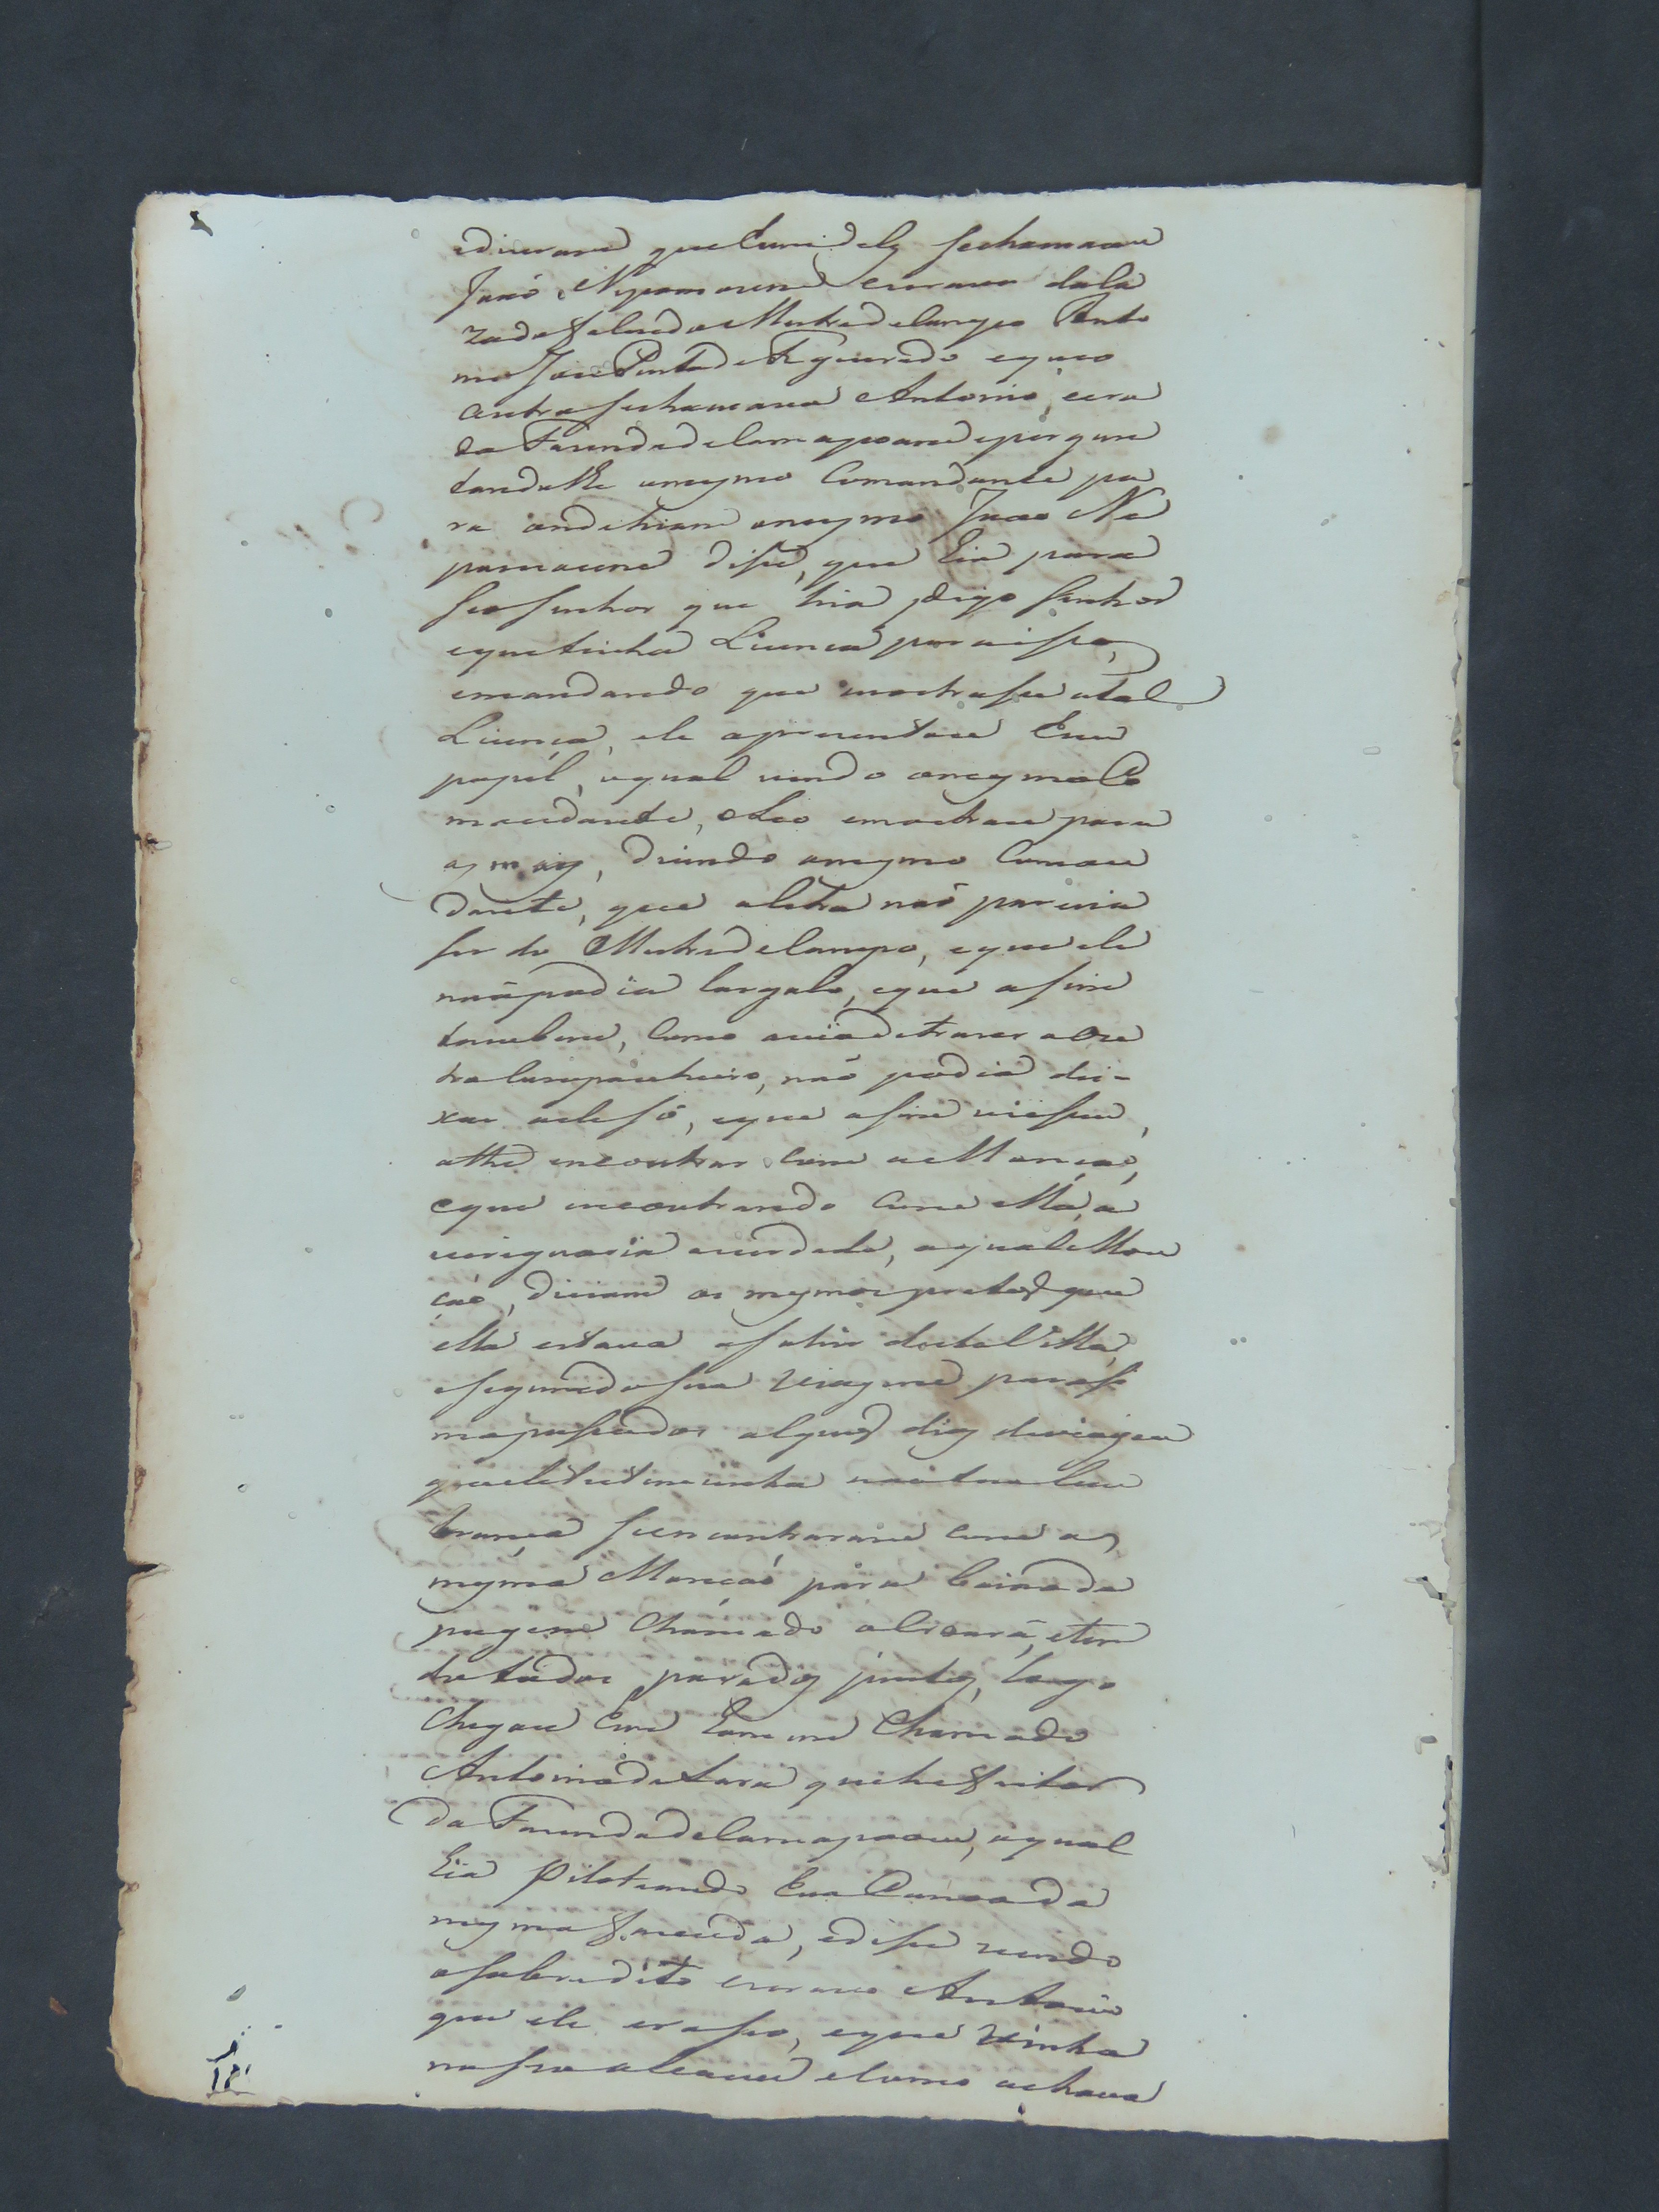 ediceram que hum delz sechamava
Joaõ Nepomoceno escravo da la
za do falecido Mestre de Campo Anto
nio Jose Pinto de Figueiredo equeo
outro sechamava Antonio, eera
da Fazenda de Camapoam epergun
tandolhe omesmo Comandante pa
ra ondehiam omesmo Joao Ne
pomoceno dise, que hia para
seo senhor que hia digo senhor
equetinha Licença paraisso,
emandando que mostrasse atal
Licença, ele aprezentou hum
papel, oqual vendo omesmo Co
mandante, oleo emostrou para
os mais, dizendo omesmo Coman
dante, que aletra naõ parecia
ser do Mestre de Campo, eque ele
naõ podia largalo, eque asim
tambem, como avia detrazer aou
tro Companheiro, naõ podia dei-
xar aele só, eque asim viesse,
athe encontrar com a Monçaõ,
eque encontrando com ella, a
veriguaria averdade, aqual Mon
çaõ, diziam os mesmos pretos que
ella estava asahir desta Villa,
eseguindo sua viagem parasi
ma passados alguns dias deviagem
queele testemunha naõ tem lem
brança seencontraram com a
mesma Monçaõ para baixo da
pagem Chamado alizará, eten
do todos parados juntos, logo
chegou hum homem Chamado
Antonio de Lara que he feitor
da Fazenda de Camapoam, oqual
hia Piloteando hua Canoa da
mesma fazenda, edise vendo
osobredito escravo Antonio
que ele era seo, eque vinha
no seo alcance ecomo achava